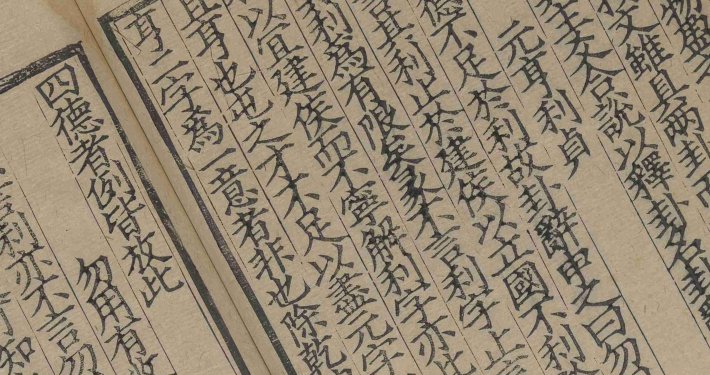 文雖具兩卦
主爻合說以釋卦名
元亨利貞
德不足於利故卦辭申之曰勿
言其利止於建侯以立國不利
利為有限矣彖不言利字
以宜建侯而不寧解利字亦此
且耳也此之才不足以盡元字
亨二字為一意者非也除乾
四德者例皆放此
勿用有攸
言利亦不言勿